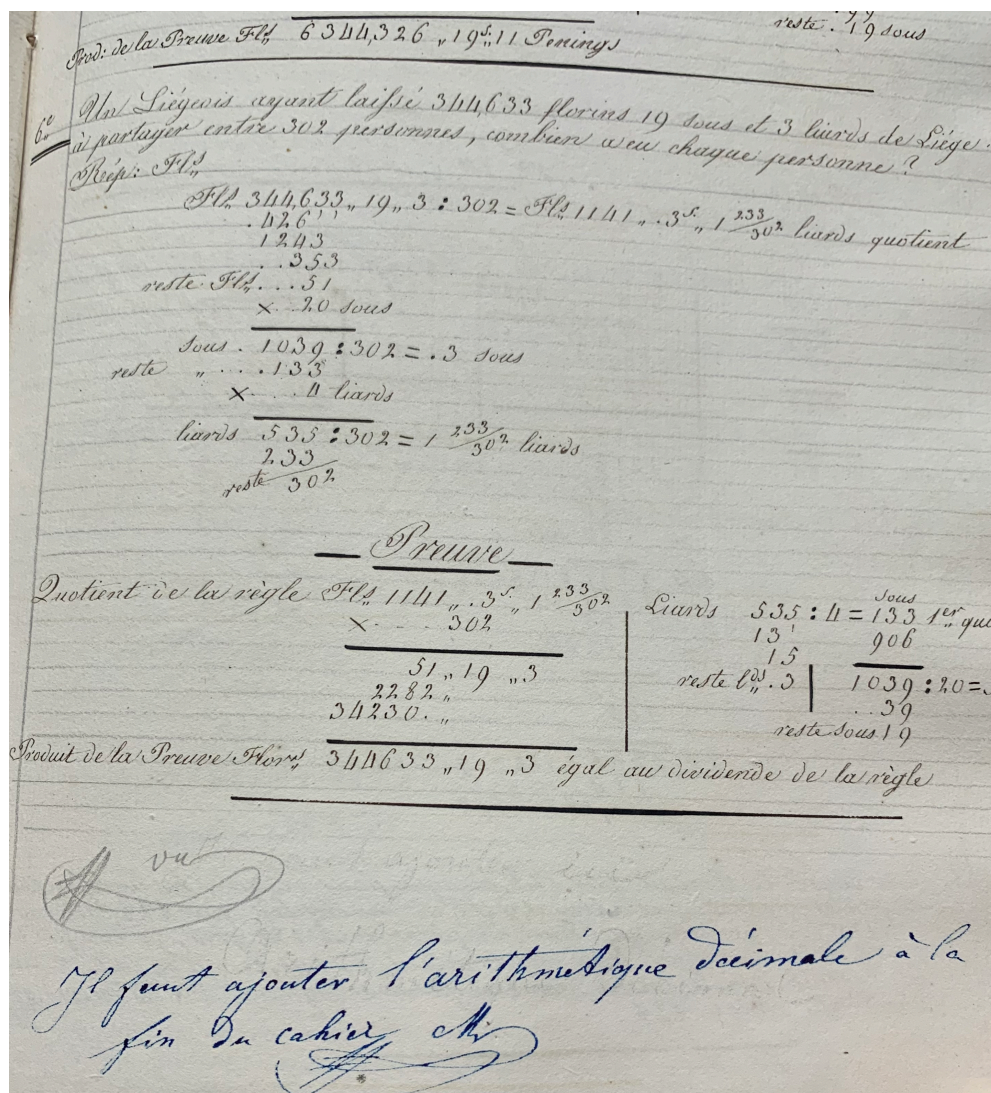 reste . 19 sous
Prod: de la Preuve Fls 6344,326 „ 19s „ 11 Penings
6e Un Liégeois ayant laissé 344,633 florins 19 sous et 3 liards de Liége.
à partager entre 302 personnes, combien a eu chaque personne ?
Rép: Fls
Fls 344,633 „ 19 „ 3 : 302 = Fls 1141 „ . 3s. „ 1 233/302 liards quotient
. 426''
1243
. . 353
reste Fls . . . 51
× . . 20 sous
sous . 1039 : 302 = . 3 sous
reste „ . . . . 133
× . . . 4 liards
liards 535 : 302 = 1 233/302 liards
233
reste 302
Preuve
Quotient de la règle Fls 1141 „ . 3s. „ 1 233/302
× . . . . 302
51 „ 19 „ 3
2282 „
34230 . „
Produit de la Preuve Flors 344633 „ 19 „ 3 égal au dividende de la règle
sous
Liards 535 : 4 = 133 1er quo
13' 906
15
reste lds . 3 1039 : 20 =
. . 39
reste sous 19
vu
Il faut ajouter l'arithmétique décimale à la
fin du cahier